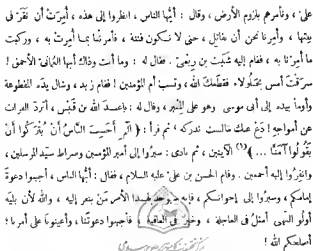 عليّ، ونأمرهم بلزوم الأرض، وقال: أيُّها الناس، انظروا إلى هذه، أُمِرَتْ أن تَقَرّ في
بيتها، وأُمِرنا نحن أن نقاتل، حتى لا تكون فتنة، فأمرتْنا بما أُمِرتْ به، وركبت
ما أُمِرنا به، فقام إليه شَبَث بن رِبْعيّ، فقال له: وما أنت وذاك أيها العُمانيّ الأحمق!
سرقتَ أمس بجَلُولاء فقطعك الله، وتسب أم المؤمنين! فقام زيد، وشال يده المقطوعة
وأومأ بيده إلى أبي موسى وهو على المنبر، وقال له: يا عبد الله بن قيس، أتردّ الفرات
عن أمواجه! دع عنك ما لست تدركه، ثم قرأ: ﴿الم أَحَسِبَ النَّاسُ أَنْ يُتْرَكُوا أَنْ
يَقُولُوا آمَنَّا ...﴾ الآيتين، ثم نادى: سيروا إلى أمير المؤمنين وصراط سيّد المرسلين،
وانفروا إليه أجمعين. وقام الحسن بن علي عليه السلام، فقال: أيها الناس، أجيبوا دعوة
إمامكم، وسيروا إلى إخوانكم، فإنه سيوجد لهذا الأمر مَنْ ينفر إليه، والله لأن يليَه
أولو النهى أمثلُ في العاجلة، وخير في العاقبة، فأجيبوا دعوتنا، وأعينونا على أمرنا؛
أصلحكم الله!